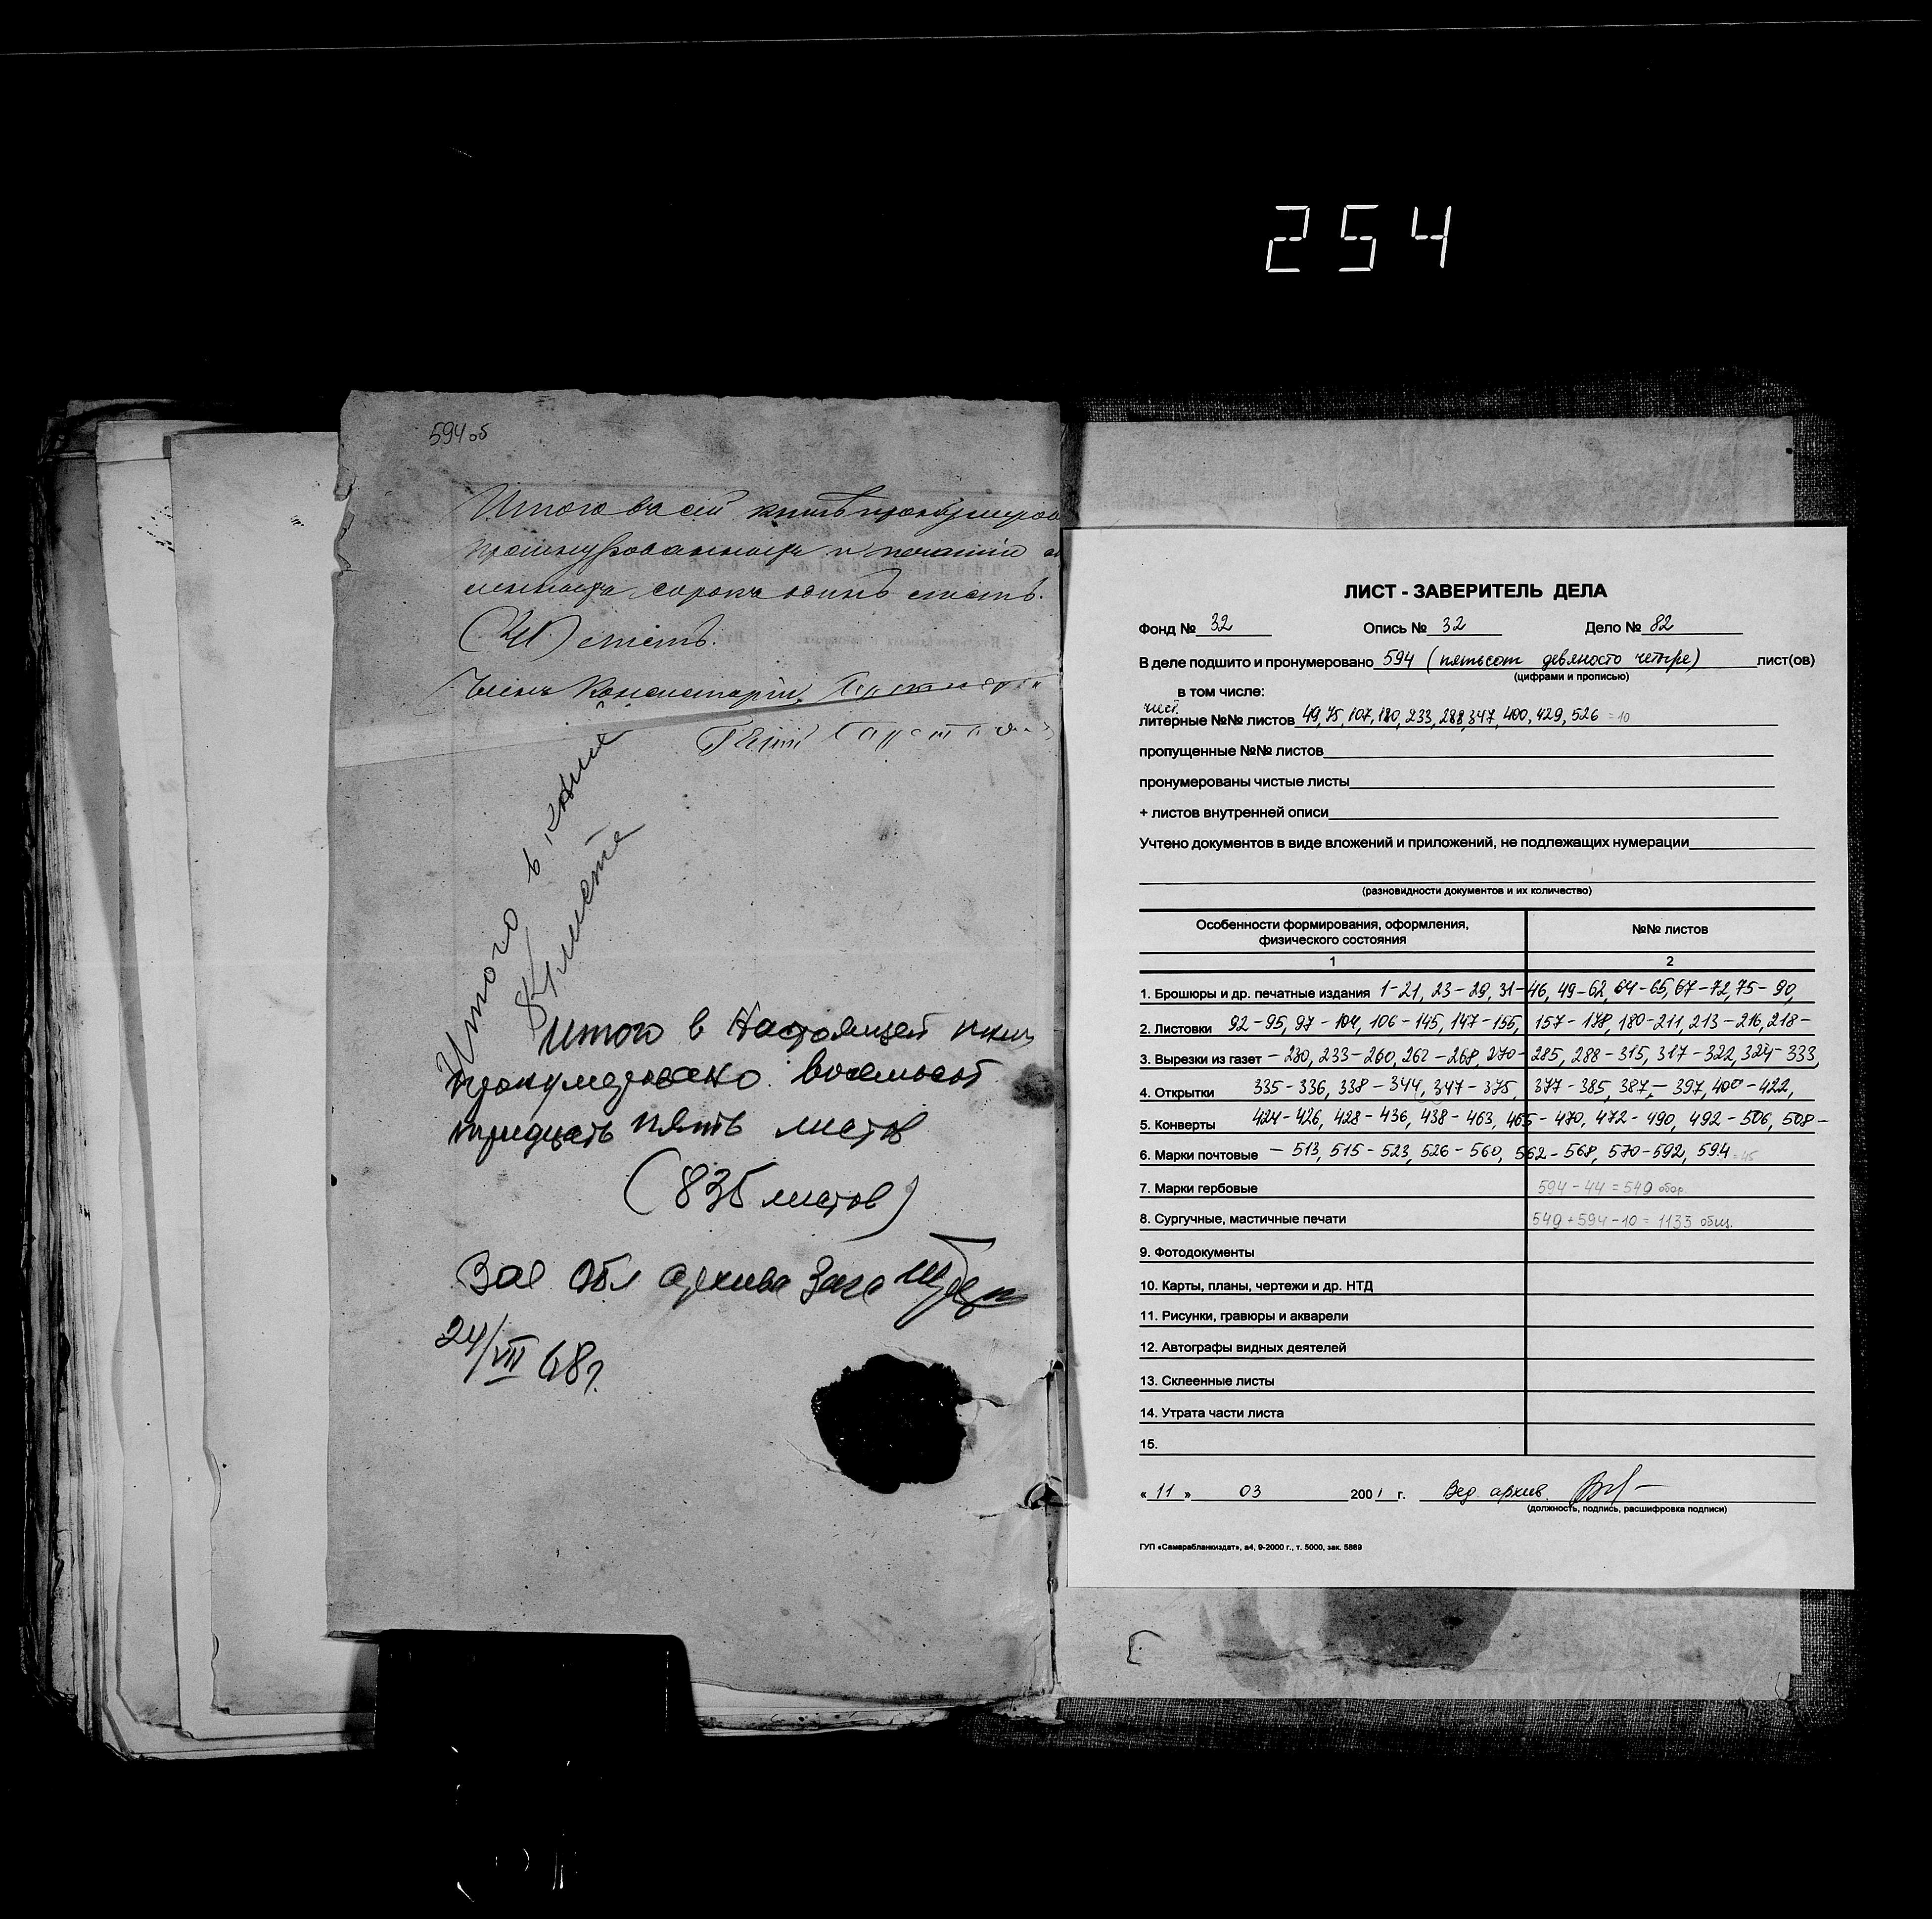 254
594 об
Итого въ сей книгѣ пронумерова
прошнурованныхъ и печатью
сорокъ одинъ листъ.
(41) листъ.
Членъ Консисторіи
Итого в книге
листа
Итого в настоящей книге
пронумеровано восемьсот
тридцать пять листов
(835 листов)
Зав Обл архива Загса
24/VII 68 г.
ЛИСТ - ЗАВЕРИТЕЛЬ ДЕЛА
Фонд № 32 Опись № 32 Дело № 82
В деле подшито и пронумеровано 594 (пятьсот девяносто четыре) лист(ов)
(цифрами и прописью)
в том числе:
чист.
литерные №№ листов 49, 75, 107, 180, 233, 288, 347, 400, 429, 526 = 10
пропущенные №№ листов
пронумерованы чистые листы
+ листов внутренней описи
Учтено документов в виде вложений и приложений, не подлежащих нумерации
(разновидности документов и их количество)
Особенности формирования, оформления, физического состояния №№ листов
1 2
1. Брошюры и др. печатные издания 1-21, 23-29, 31-46, 49-62, 64-65, 67-72, 75-90,
2. Листовки 92-95, 97-104, 106-145, 147-155, 157-178, 180-211, 213-216, 218-
3. Вырезки из газет -230, 233-260, 262-268, 270-285, 288-315, 317-322, 324-333,
4. Открытки 335-336, 338-344, 347-375, 377-385, 387-397, 400-422,
5. Конверты 424-426, 428-436, 438-463, 465-470, 472-490, 492-506, 508-
6. Марки почтовые -513, 515-523, 526-560, 562-568, 570-592, 594 = 45
7. Марки гербовые 594-44=549 обор.
8. Сургучные, мастичные печати 549+594-10=1133 общ.
9. Фотодокументы
10. Карты, планы, чертежи и др. НТД
11. Рисунки, гравюры и акварели
12. Автографы видных деятелей
13. Склеенные листы
14. Утрата части листа
15.
« 11 » 03 2001 г. Вед. архив.
(должность, подпись, расшифровка подписи)
ГУП «Самарабланкиздат», в4, 9-2000 г., т. 5000, зак. 5889